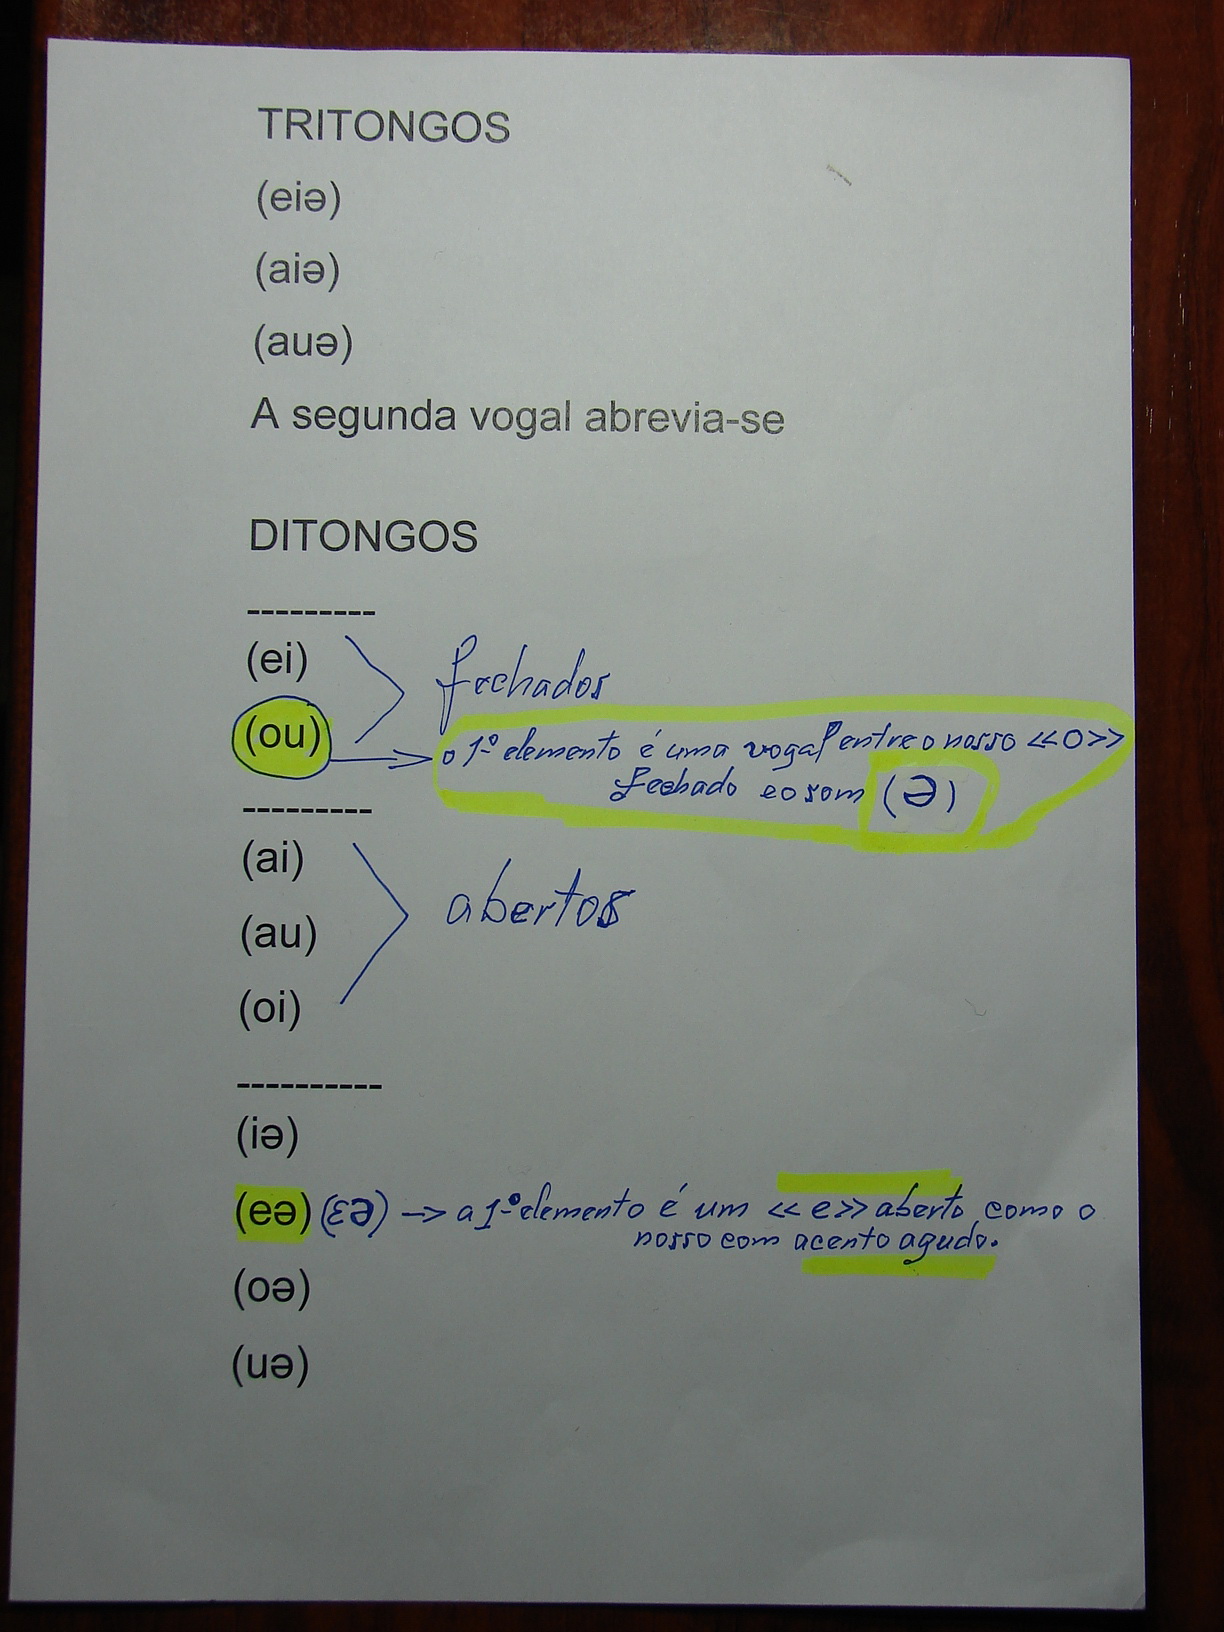 TRITONGOS
(eiə)
(aiə)
(auə)
A segunda vogal abrevia-se
DITONGOS
---------
(ei)
fechados
(ou)
o 1º elemento é uma vogal entre o nosso <<o>>
fechado e o som (ə)
---------
(ai)
(au)
abertos
(oi)
----------
(iə)
(eə) (ɛə) -> a 1º elemento é um <<e>> aberto como o
nosso com acento agudo.
(oə)
(uə)